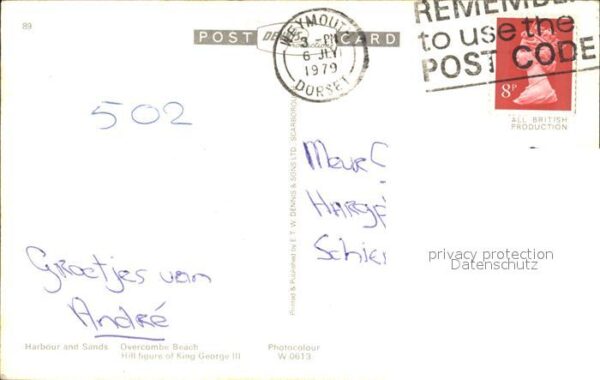 89
POST CARD
WEYMOUTH
3 - PM
6 JLY
1979
DORSET
REMEMBER
to use the
POST CODE
8P
ALL BRITISH
PRODUCTION
502
Printed & Published by E.T.W. DENNIS & SONS LTD., SCARBOROUGH
Harge
Schie
privacy protection
Datenschutz
Groetjes van
André
Harbour and Sands. Overcombe Beach
Hill figure of King George III
Photocolour
W 0613